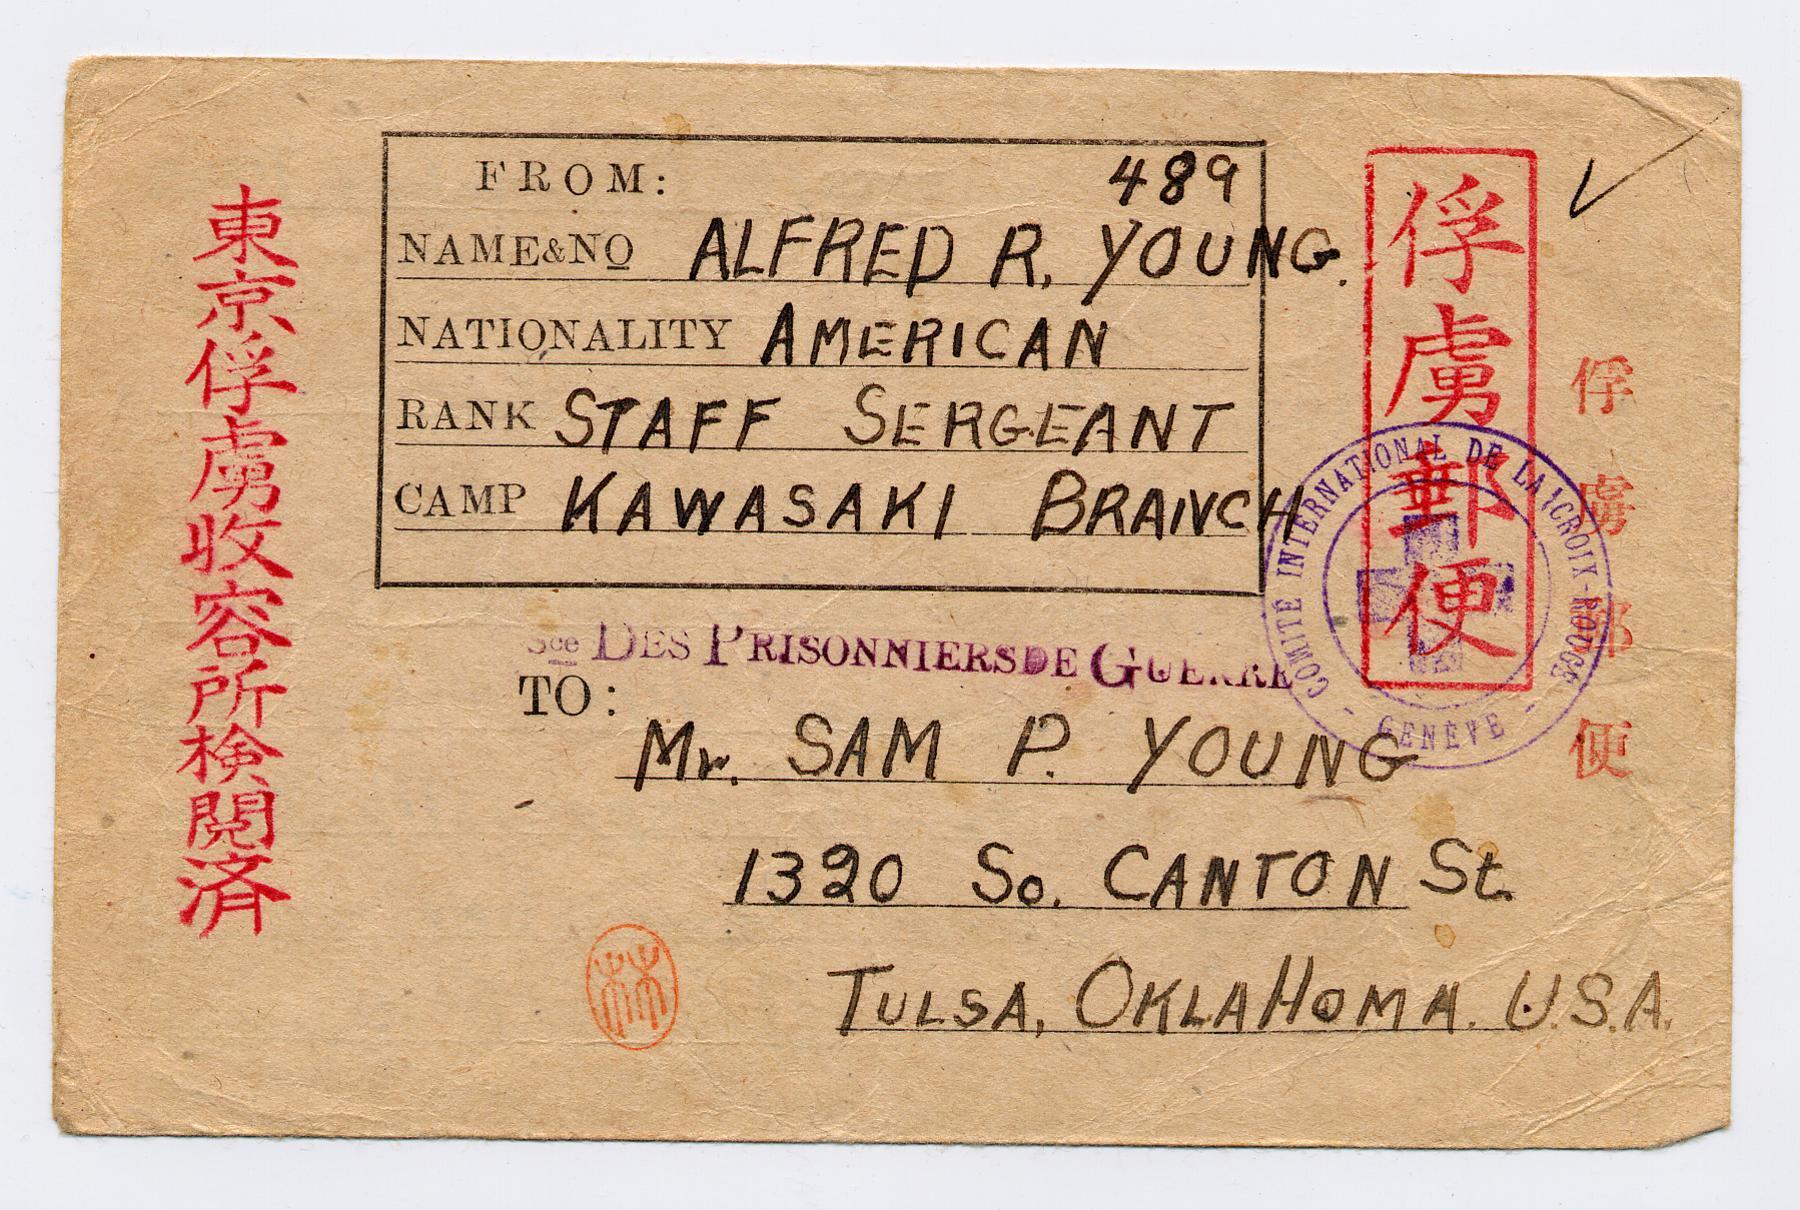 FROM:
489
NAME&NO ALFRED R. YOUNG.
NATIONALITY AMERICAN
RANK STAFF SERGEANT
CAMP KAWASAKI BRANCH
Sce DES PRISONNIERS DE GUERRE
TO:
Mr. SAM P. YOUNG
1320 So. CANTON St.
TULSA, OKLAHOMA. U.S.A.
東京俘虜収容所検閲済
俘虜郵便
俘虜郵便
COMITÉ INTERNATIONAL DE LA CROIX-ROUGE
- GENÈVE -
林